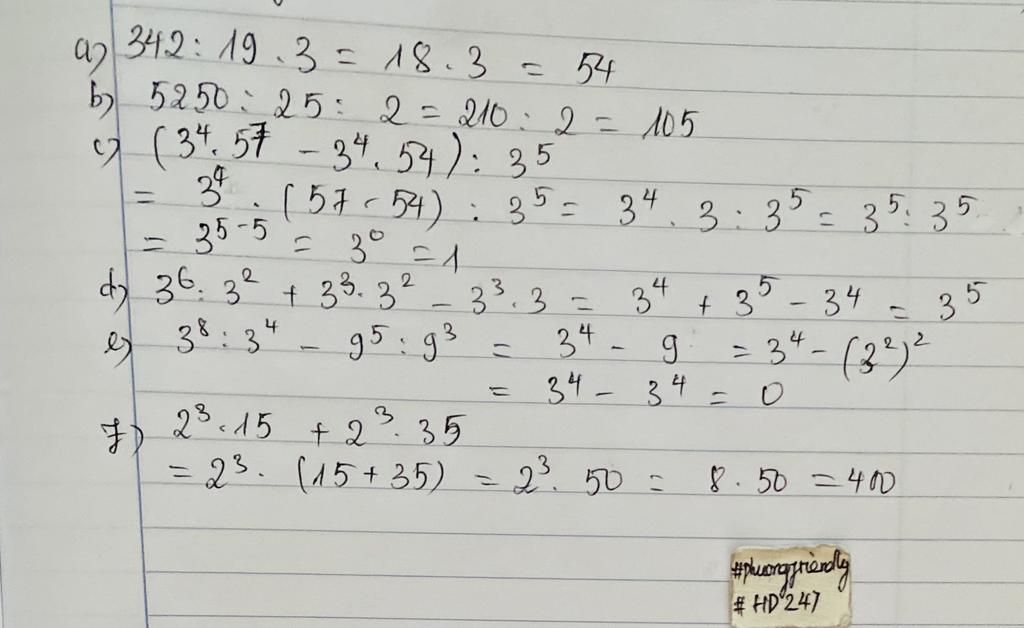 a) 342 : 19 . 3 = 18 . 3 = 54
b) 5250 : 25 : 2 = 210 : 2 = 105
c) (3⁴. 57 - 3⁴. 54) : 3⁵
= 3⁴ . (57 - 54) : 3⁵ = 3⁴ . 3 : 3⁵ = 3⁵ : 3⁵
= 3⁵⁻⁵ = 3⁰ = 1
d) 3⁶ : 3² + 3³. 3² - 3³ . 3 = 3⁴ + 3⁵ - 3⁴ = 3⁵
e) 3⁸ : 3⁴ - 9⁵ : 9³ = 3⁴ - 9 = 3⁴ - (3²)²
= 3⁴ - 3⁴ = 0
f) 2³ . 15 + 2³ . 35
= 2³ . (15 + 35) = 2³ . 50 = 8 . 50 = 400
#phuongfriendly
# HD 247